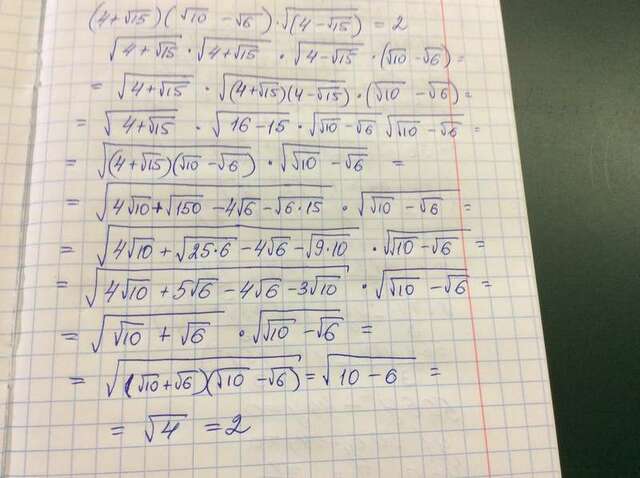 (4+√15)(√10 -√6)·√(4-√15) = 2
√(4+√15) · √(4+√15) · √(4-√15) · (√10 -√6) =
= √(4+√15) · √((4+√15)(4-√15)) · (√10 -√6) =
= √(4+√15) · √(16-15) · √(√10 -√6) √(√10 -√6) =
= √((4+√15)(√10 -√6)) · √(√10 -√6) =
= √(4√10 +√150 -4√6 -√(6·15)) · √(√10 -√6) =
= √(4√10 +√(25·6) -4√6 -√(9·10)) · √(√10 -√6) =
= √(4√10 +5√6 -4√6 -3√10) · √(√10 -√6) =
= √(√10 +√6) · √(√10 -√6) =
= √((√10+√6)(√10 -√6)) = √(10-6) =
= √4 = 2